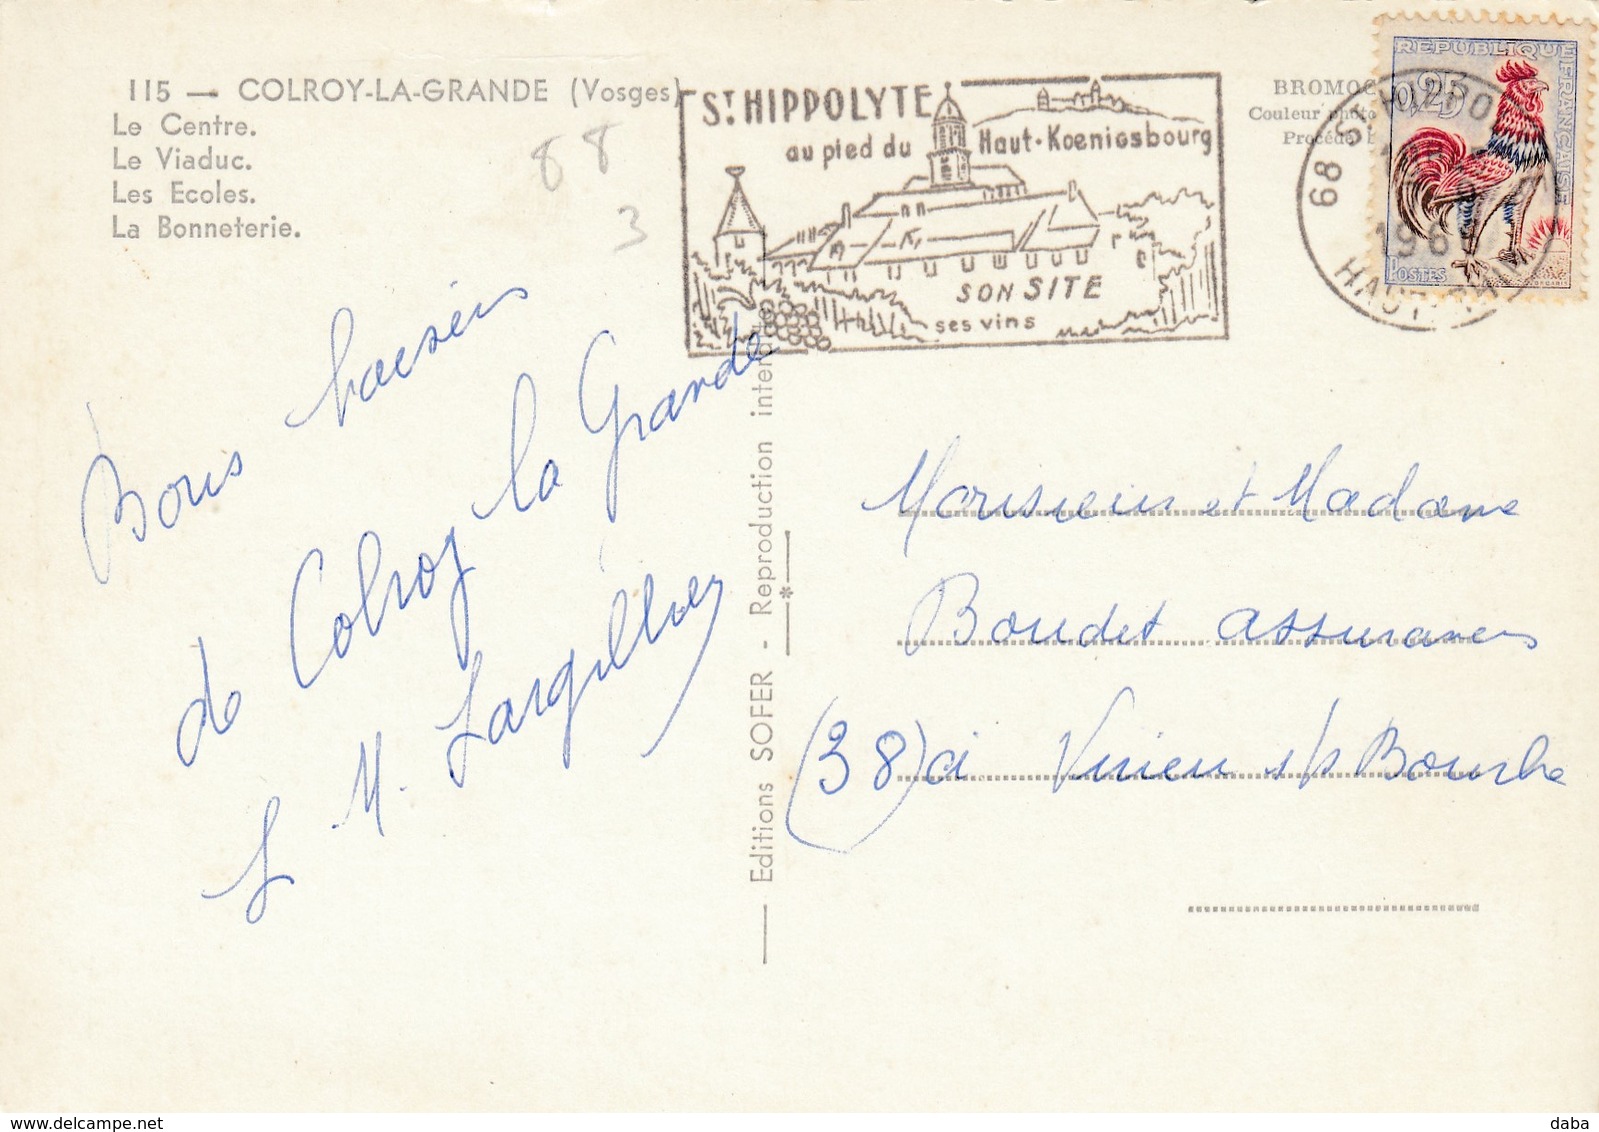 115 — COLROY-LA-GRANDE (Vosges)
Le Centre.
Le Viaduc.
Les Ecoles.
La Bonneterie.
88
3
ST HIPPOLYTE
au pied du Haut-Koenigsbourg
SON SITE
ses vins
BROMOC
Couleur photo
Procédé
68 ST HIPPOLYTE
196
HAUT-RHIN
REPUBLIQUE FRANÇAISE
0,25
POSTES
Bons baisers
de Colroy la Grande
Editions SOFER - Reproduction interdite
Monsieur et Madame
Boudet assurances
(38) à Virieu s/s Bourbe
daba